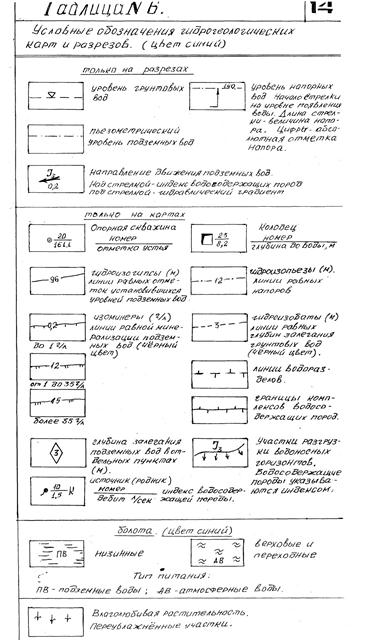 Таблица N 6.
14
Условные обозначения гидрогеологических
карт и разрезов. (цвет синий)
только на разрезах
уровень грунтовых
вод
150
уровень напорных
вод. Начало стрелки
на уровне появления
воды. Длина стрел-
ки - величина напо-
ра. Цифры - абсо-
лютная отметка
напора.
пьезометрический
уровень подземных вод
J₃
0,2
Направление движения подземных вод.
Над стрелкой - индекс водосодержащих пород
под стрелкой - гидравлический градиент
только на картах
20
161.1
Опорная скважина
номер
отметка устья
25
8,2
Колодец
номер
глубина до воды, м
96
гидроизогипсы (м)
линии равных отме-
ток установившихся
уровней подземных вод
12
гидроизопьезы (м).
линии равных
напоров
0,2
до 1 г/л
12
от 1 до 35 г/л
45
более 35 г/л
изоминеры (г/л)
линии равной мине-
рализации подзем-
ных вод (чёрный
цвет)
3
гидроизобаты (м)
линии равных
глубин залегания
грунтовых вод
(чёрный цвет).
линии водораз-
делов.
границы комп-
лексов водосо-
держащих пород.
3
глубина залегания
подземных вод в от-
дельных пунктах
(м).
J₃
Участки разгруз-
ки водоносных
горизонтов.
Водосодержащие
породы указыва-
ются индексом.
10
1,5
К
источник (родник)
номер
дебит л/сек
индекс водосодер-
жащей породы.
болота. (цвет синий)
ПВ
низинные
АВ
верховые и
переходные
Тип питания:
ПВ - подземные воды; АВ - атмосферные воды.
Влаголюбивая растительность.
Переувлажнённые участки.